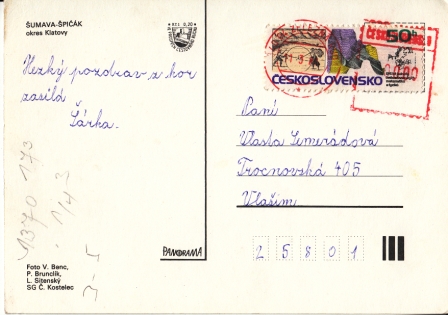 ŠUMAVA-ŠPIČÁK
okres Klatovy
Hezký pozdrav z hor
zasílá
Šárka.
1370 173
Foto V. Benc,
P. Brunclík,
L. Sitenský
SG Č. Kostelec
PANORAMA
50h
ČESKOSLOVENSKO
Paní
Vlasta Semerádová
Trocnovská 405
Vlašim
25801